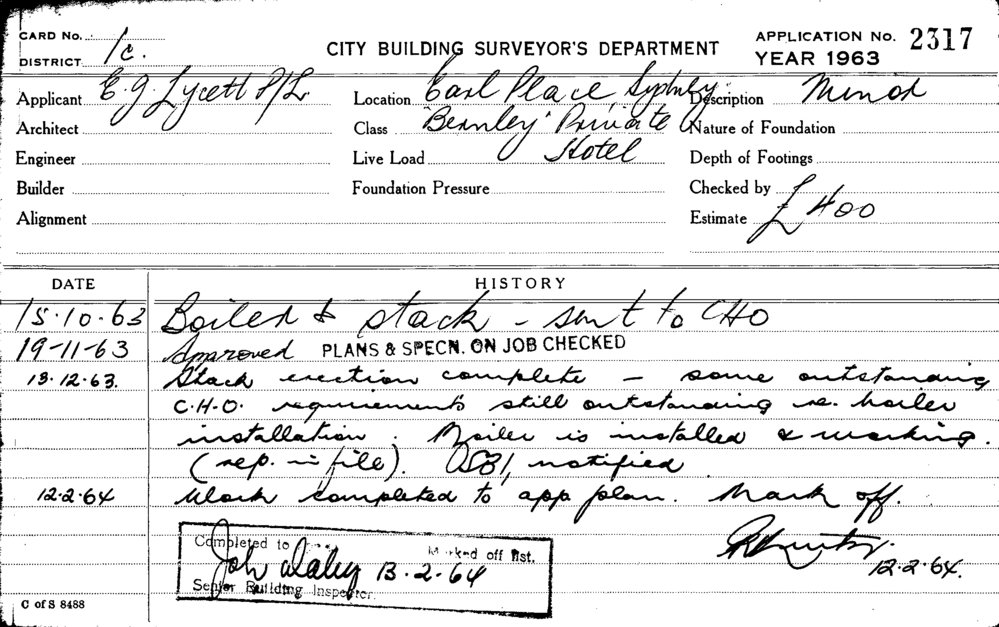 CARD No. 1c.
DISTRICT
CITY BUILDING SURVEYOR'S DEPARTMENT
APPLICATION No. 2317
YEAR 1963
Applicant E.G. Lycett P/L
Location Earl Place, Sydney
Description Minor
Architect
Class "Bernley" Private Hotel
Nature of Foundation
Engineer
Live Load
Depth of Footings
Builder
Foundation Pressure
Checked by
Alignment
Estimate £400
DATE HISTORY
15.10.63 Boiler & stack - sent to CHO
19-11-63 Approved PLANS & SPECN. ON JOB CHECKED
13.12.63. Stack erection complete - some outstanding
C.H.O. requirements still outstanding re. boiler
installation. Boiler is installed & working.
(rep. in file). notified
12.2.64 Work completed to app plan. Mark off.
12.2.64.
Completed to Marked off list.
John Daley 13.2.64
Senior Building Inspector.
C of S 8488